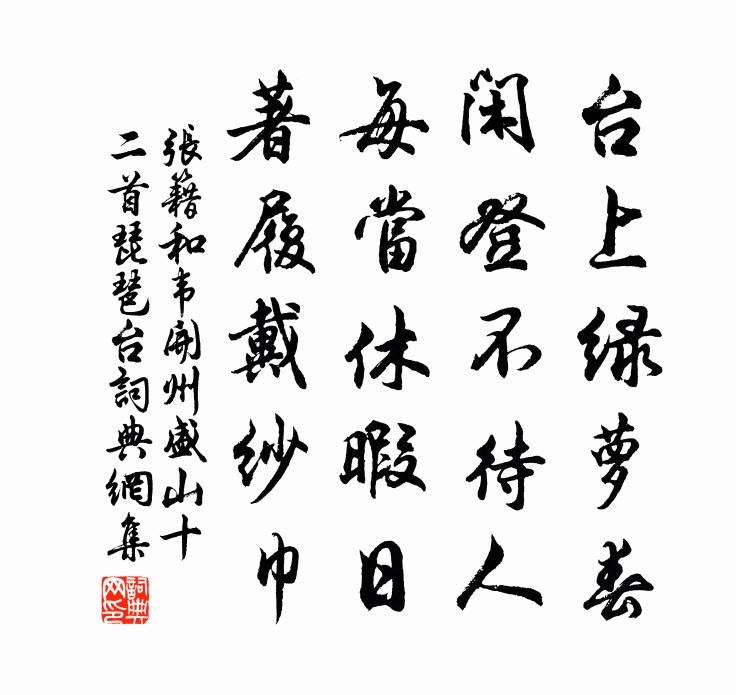 台上绿萝春
闲登不待人
每當休暇日
著履戴纱巾
張籍和韦開州盛山十
二首琵琶台詞典網集
詞典网印